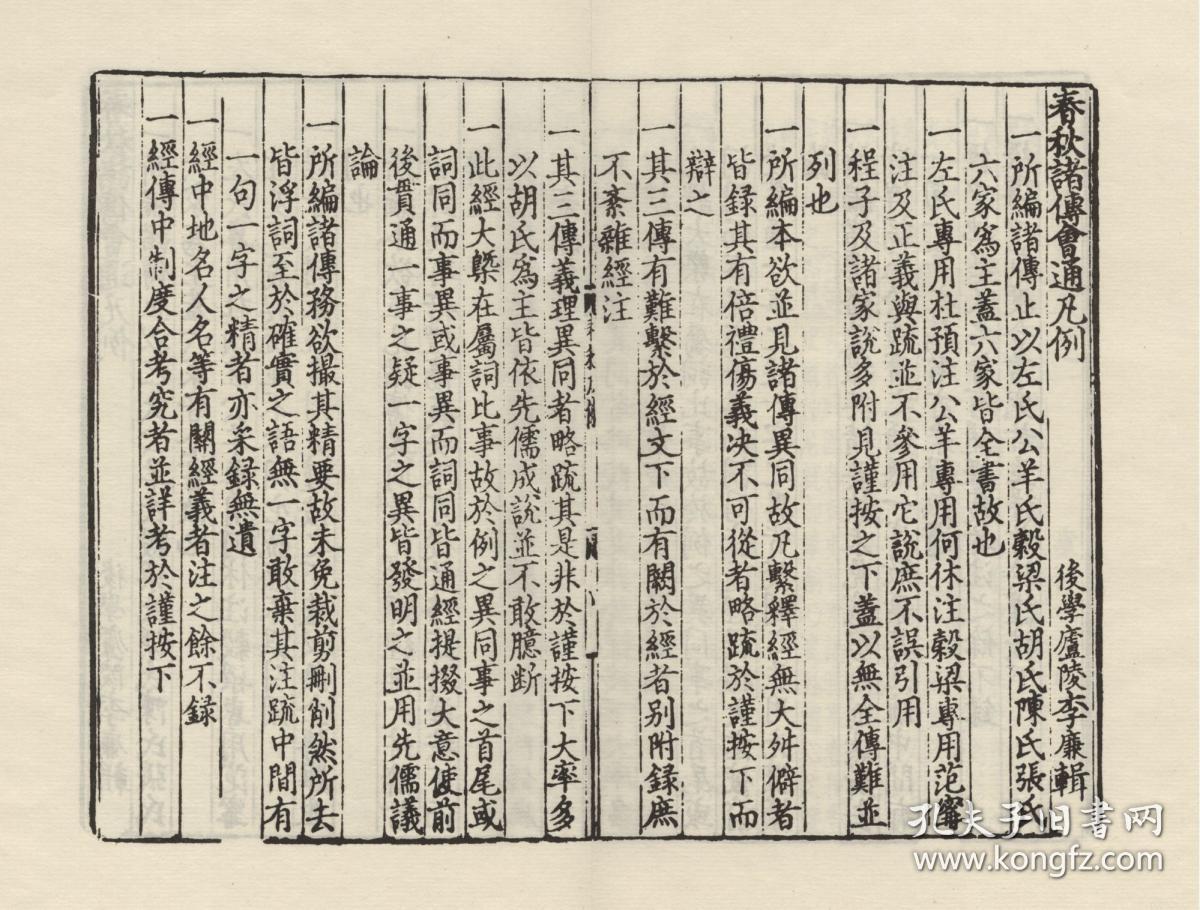 春秋諸傳會通凡例
後學廬陵李廉輯
一所編諸傳止以左氏公羊氏穀梁氏胡氏陳氏張氏
六家爲主蓋六家皆全書故也
一左氏專用杜預注公羊專用何休注穀梁專用范甯
注及正義與疏並不參用它說庶不誤引用
一程子及諸家說多附見謹按之下蓋以無全傳難並
列也
一所編本欲並見諸傳異同故凡繫釋經無大舛僻者
皆錄其有倍禮傷義决不可從者略疏於謹按下而
辯之
一其三傳有難繫於經文下而有關於經者别附錄庶
不紊雜經注
一其三傳義理異同者略疏其是非於謹按下大率多
以胡氏爲主皆依先儒成說並不敢臆断
一此經大槩在屬詞比事故於例之異同事之首尾或
詞同而事異或事異而詞同皆通經提掇大意使前
後貫通一事之疑一字之異皆發明之並用先儒議
論
一所編諸傳務欲撮其精要故未免裁剪刪削然所去
皆浮詞至於確實之語無一字敢棄其注疏中間有
一句一字之精者亦采録無遺
一經中地名人名等有關經義者注之餘不録
一經傳中制度合考究者並詳考於謹按下
孔夫子旧书网
www.kongfz.com